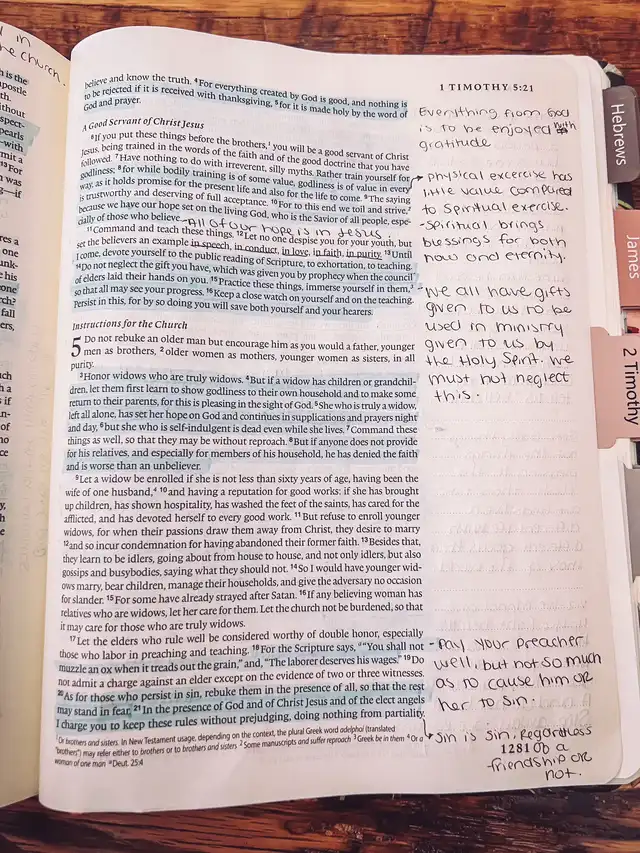 1 TIMOTHY 5:21
believe and know the truth. ⁴For everything created by God is good, and nothing is
to be rejected if it is received with thanksgiving, ⁵for it is made holy by the word of
God and prayer.
A Good Servant of Christ Jesus
⁶If you put these things before the brothers,¹ you will be a good servant of Christ
Jesus, being trained in the words of the faith and of the good doctrine that you have
followed. ⁷Have nothing to do with irreverent, silly myths. Rather train yourself for
godliness; ⁸for while bodily training is of some value, godliness is of value in every
way, as it holds promise for the present life and also for the life to come. ⁹The saying
is trustworthy and deserving of full acceptance. ¹⁰For to this end we toil and strive,²
because we have our hope set on the living God, who is the Savior of all people, espe-
cially of those who believe. -All of our hope is in Jesus.
¹¹Command and teach these things. ¹²Let no one despise you for your youth, but
set the believers an example in speech, in conduct, in love, in faith, in purity. ¹³Until
I come, devote yourself to the public reading of Scripture, to exhortation, to teaching.
¹⁴Do not neglect the gift you have, which was given you by prophecy when the council
of elders laid their hands on you. ¹⁵Practice these things, immerse yourself in them,³
so that all may see your progress. ¹⁶Keep a close watch on yourself and on the teaching.
Persist in this, for by so doing you will save both yourself and your hearers.
Instructions for the Church
5 Do not rebuke an older man but encourage him as you would a father, younger
men as brothers, ²older women as mothers, younger women as sisters, in all
purity.
³Honor widows who are truly widows. ⁴But if a widow has children or grandchil-
dren, let them first learn to show godliness to their own household and to make some
return to their parents, for this is pleasing in the sight of God. ⁵She who is truly a widow,
left all alone, has set her hope on God and continues in supplications and prayers night
and day, ⁶but she who is self-indulgent is dead even while she lives. ⁷Command these
things as well, so that they may be without reproach. ⁸But if anyone does not provide
for his relatives, and especially for members of his household, he has denied the faith
and is worse than an unbeliever.
⁹Let a widow be enrolled if she is not less than sixty years of age, having been the
wife of one husband,⁴ ¹⁰and having a reputation for good works: if she has brought
up children, has shown hospitality, has washed the feet of the saints, has cared for the
afflicted, and has devoted herself to every good work. ¹¹But refuse to enroll younger
widows, for when their passions draw them away from Christ, they desire to marry
¹²and so incur condemnation for having abandoned their former faith. ¹³Besides that,
they learn to be idlers, going about from house to house, and not only idlers, but also
gossips and busybodies, saying what they should not. ¹⁴So I would have younger wid-
ows marry, bear children, manage their households, and give the adversary no occasion
for slander. ¹⁵For some have already strayed after Satan. ¹⁶If any believing woman has
relatives who are widows, let her care for them. Let the church not be burdened, so that
it may care for those who are truly widows.
¹⁷Let the elders who rule well be considered worthy of double honor, especially
those who labor in preaching and teaching. ¹⁸For the Scripture says, "You shall not
muzzle an ox when it treads out the grain," and, "The laborer deserves his wages." ¹⁹Do
not admit a charge against an elder except on the evidence of two or three witnesses.
²⁰As for those who persist in sin, rebuke them in the presence of all, so that the rest
may stand in fear. ²¹In the presence of God and of Christ Jesus and of the elect angels
I charge you to keep these rules without prejudging, doing nothing from partiality.
¹Or brothers and sisters. In New Testament usage, depending on the context, the plural Greek word adelphoi (translated
"brothers") may refer either to brothers or to brothers and sisters ²Some manuscripts and suffer reproach ³Greek be in them ⁴Or a
woman of one man Deut. 25:4
Everything from God
is to be enjoyed with
gratitude
physical excercise has
little value compared
to Spiritual exercise.
-Spiritual brings
blessings for both
now and eternity.
-We all have gifts
given to us to be
used in ministry
given to us by
the Holy Spirit. We
must not neglect
this.
-Pay your preacher
well, but not so much
as to cause him or
her to sin.
Sin is sin, regardless
1281 of a
friendship or
not.
Hebrews
James
2 Timothy
in
the church.